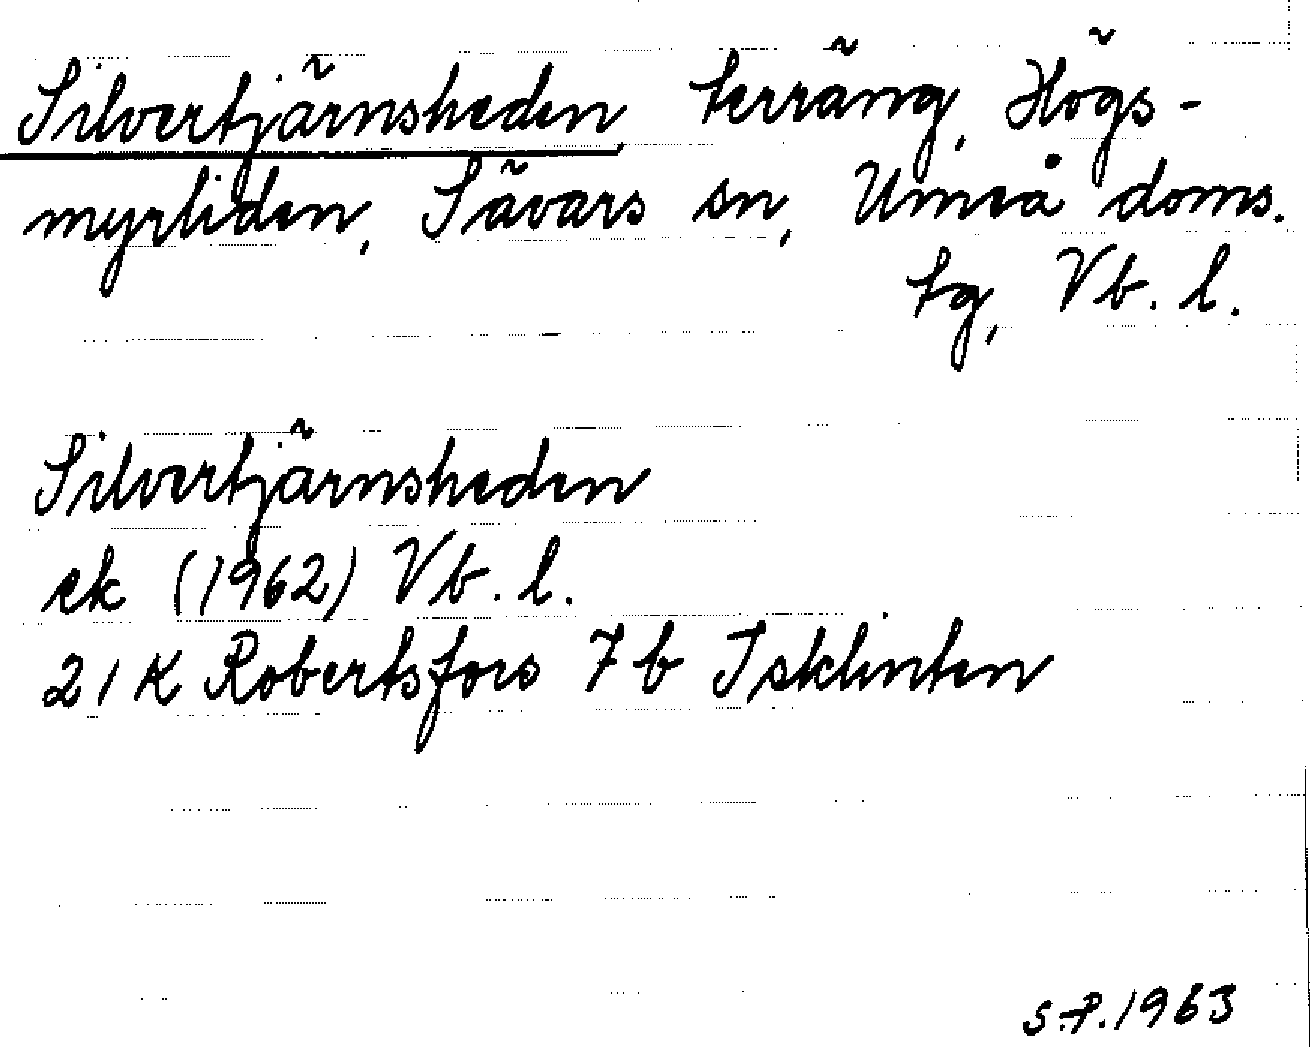 Silvertjärnsheden, terräng, Högs-
myrliden, Sävars sn, Umeå doms.
tg, Vb. l.
Silvertjärnsheden
ek (1962) Vb. l.
21 K Robertsfors 7 b Isklinten
S.P. 1963